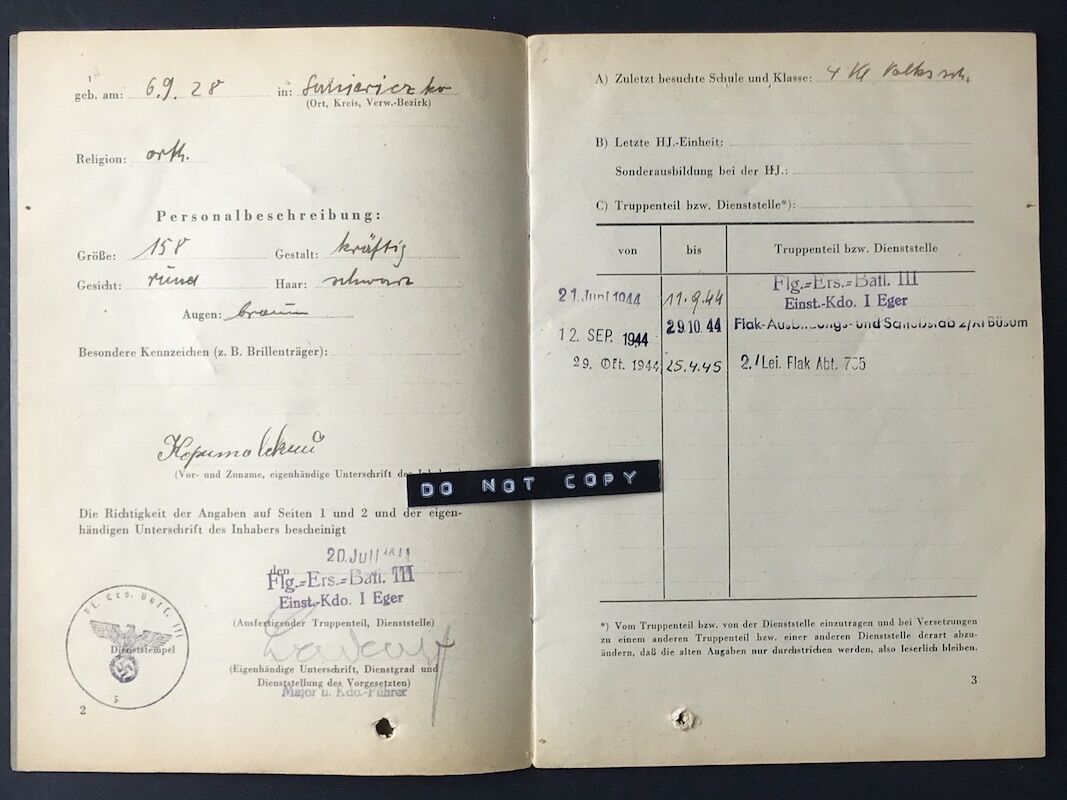 geb. am: 6.9.28 in:
(Ort, Kreis, Verw.-Bezirk)
Religion: orth.
Personalbeschreibung:
Größe: 158 Gestalt: kräftig
Gesicht: rund Haar: schwarz
Augen: braun
Besondere Kennzeichen (z. B. Brillenträger):
(Vor- und Zuname, eigenhändige Unterschrift des
Die Richtigkeit der Angaben auf Seiten 1 und 2 und der eigen-
händigen Unterschrift des Inhabers bescheinigt
20. Juli
den
Flg.=Ers.=Batl. III
Einst.-Kdo. I Eger
(Ausfertigender Truppenteil, Dienststelle)
Dienststempel
(Eigenhändige Unterschrift, Dienstgrad und
Dienststellung des Vorgesetzten)
Major u. Kdo.-Führer
2
DO NOT COPY
A) Zuletzt besuchte Schule und Klasse: 4 Kl Volkssch.
B) Letzte HJ.-Einheit:
Sonderausbildung bei der HJ.:
C) Truppenteil bzw. Dienststelle*):
von bis Truppenteil bzw. Dienststelle
21. Juni 1944 11.9.44 Flg.=Ers.=Batl. III
Einst.-Kdo. I Eger
12. SEP. 1944 29.10.44 2/XI Büsum
29. Okt. 1944 25.4.45 2./Lei. Flak Abt.
*) Vom Truppenteil bzw. von der Dienststelle einzutragen und bei Versetzungen
zu einem anderen Truppenteil bzw. einer anderen Dienststelle derart abzu-
ändern, daß die alten Angaben nur durchstrichen werden, also leserlich bleiben.
3